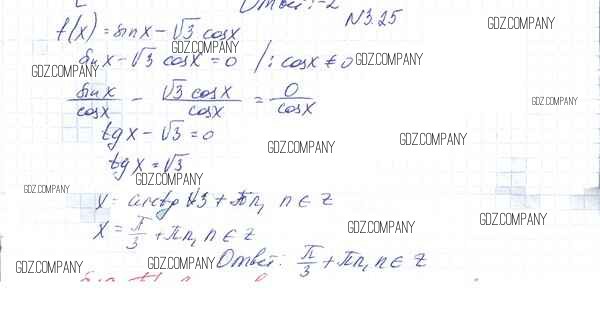 Ответ: -2
N3.25
f(x) = sinx - √3 cosx
sinx - √3 cosx = 0 /: cosx ≠ 0
sinx/cosx - √3 cosx/cosx = 0/cosx
tgx - √3 = 0
tgx = √3
x = arctg √3 + πn, n ∈ z
x = π/3 + πn, n ∈ z
Ответ: π/3 + πn, n ∈ z
GDZ.COMPANY
GDZ.COMPANY
GDZ.COMPANY
GDZ.COMPANY
GDZ.COMPANY
GDZ.COMPANY
GDZ.COMPANY
GDZ.COMPANY
GDZ.COMPANY
GDZ.COMPANY
GDZ.COMPANY
GDZ.COMPANY
GDZ.COMPANY